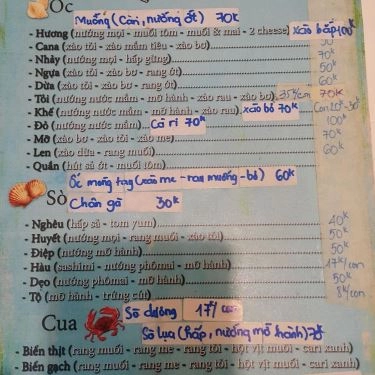 Ốc
Muống (Cari, nướng ớt) 70k
- Hương (nướng mọi - muối tôm - muối & mai - 2 cheese) xào bắp 100k
- Cana (xào tỏi - xào mắm tiêu - xào bơ) 50
- Nhảy (nướng mọi - hấp gừng) 50k
- Ngựa (xào tỏi - xào bơ - rang ớt) 50k
- Dừa (xào tỏi - xào bơ - rang ớt) 60k
- Tỏi (nướng nước mắm - mỡ hành - xào rau - xào bơ) 35k/con 70k
- Khế (nướng nước mắm - mỡ hành - xào rau) xào bò 70k
- Đỏ (nướng nước mắm) Cà ri 70k 100k
- Mỡ (xào bơ - xào tỏi - xào me) 70k
- Len (xào dừa - rang muối) 60k
- Quắn (hút sả ớt - muối tôm)
Ốc móng tay (xào me - rau muống - bò) 60k
Sò
Chân gà 30k
- Nghêu (hấp sả - tom yum) 40k
- Huyết (nướng mọi - rang muối - xào tỏi) 50k
- Điệp (nướng mỡ hành) 50k
- Hàu (sashimi - nướng phômai - mỡ hành) 17k/con
- Dẹo (nướng phômai - mỡ hành) 50k
- Tộ (mỡ hành - trứng cút) 8k/con
Cua
Sò dương 17k/con
Sò lụa (hấp, nướng mỡ hành) 70k
- Biển thịt (rang muối - rang me - rang tỏi - hột vịt muối - cari xanh)
- Biển gạch (rang muối - rang me - rang tỏi - hột vịt muối - cari xanh)